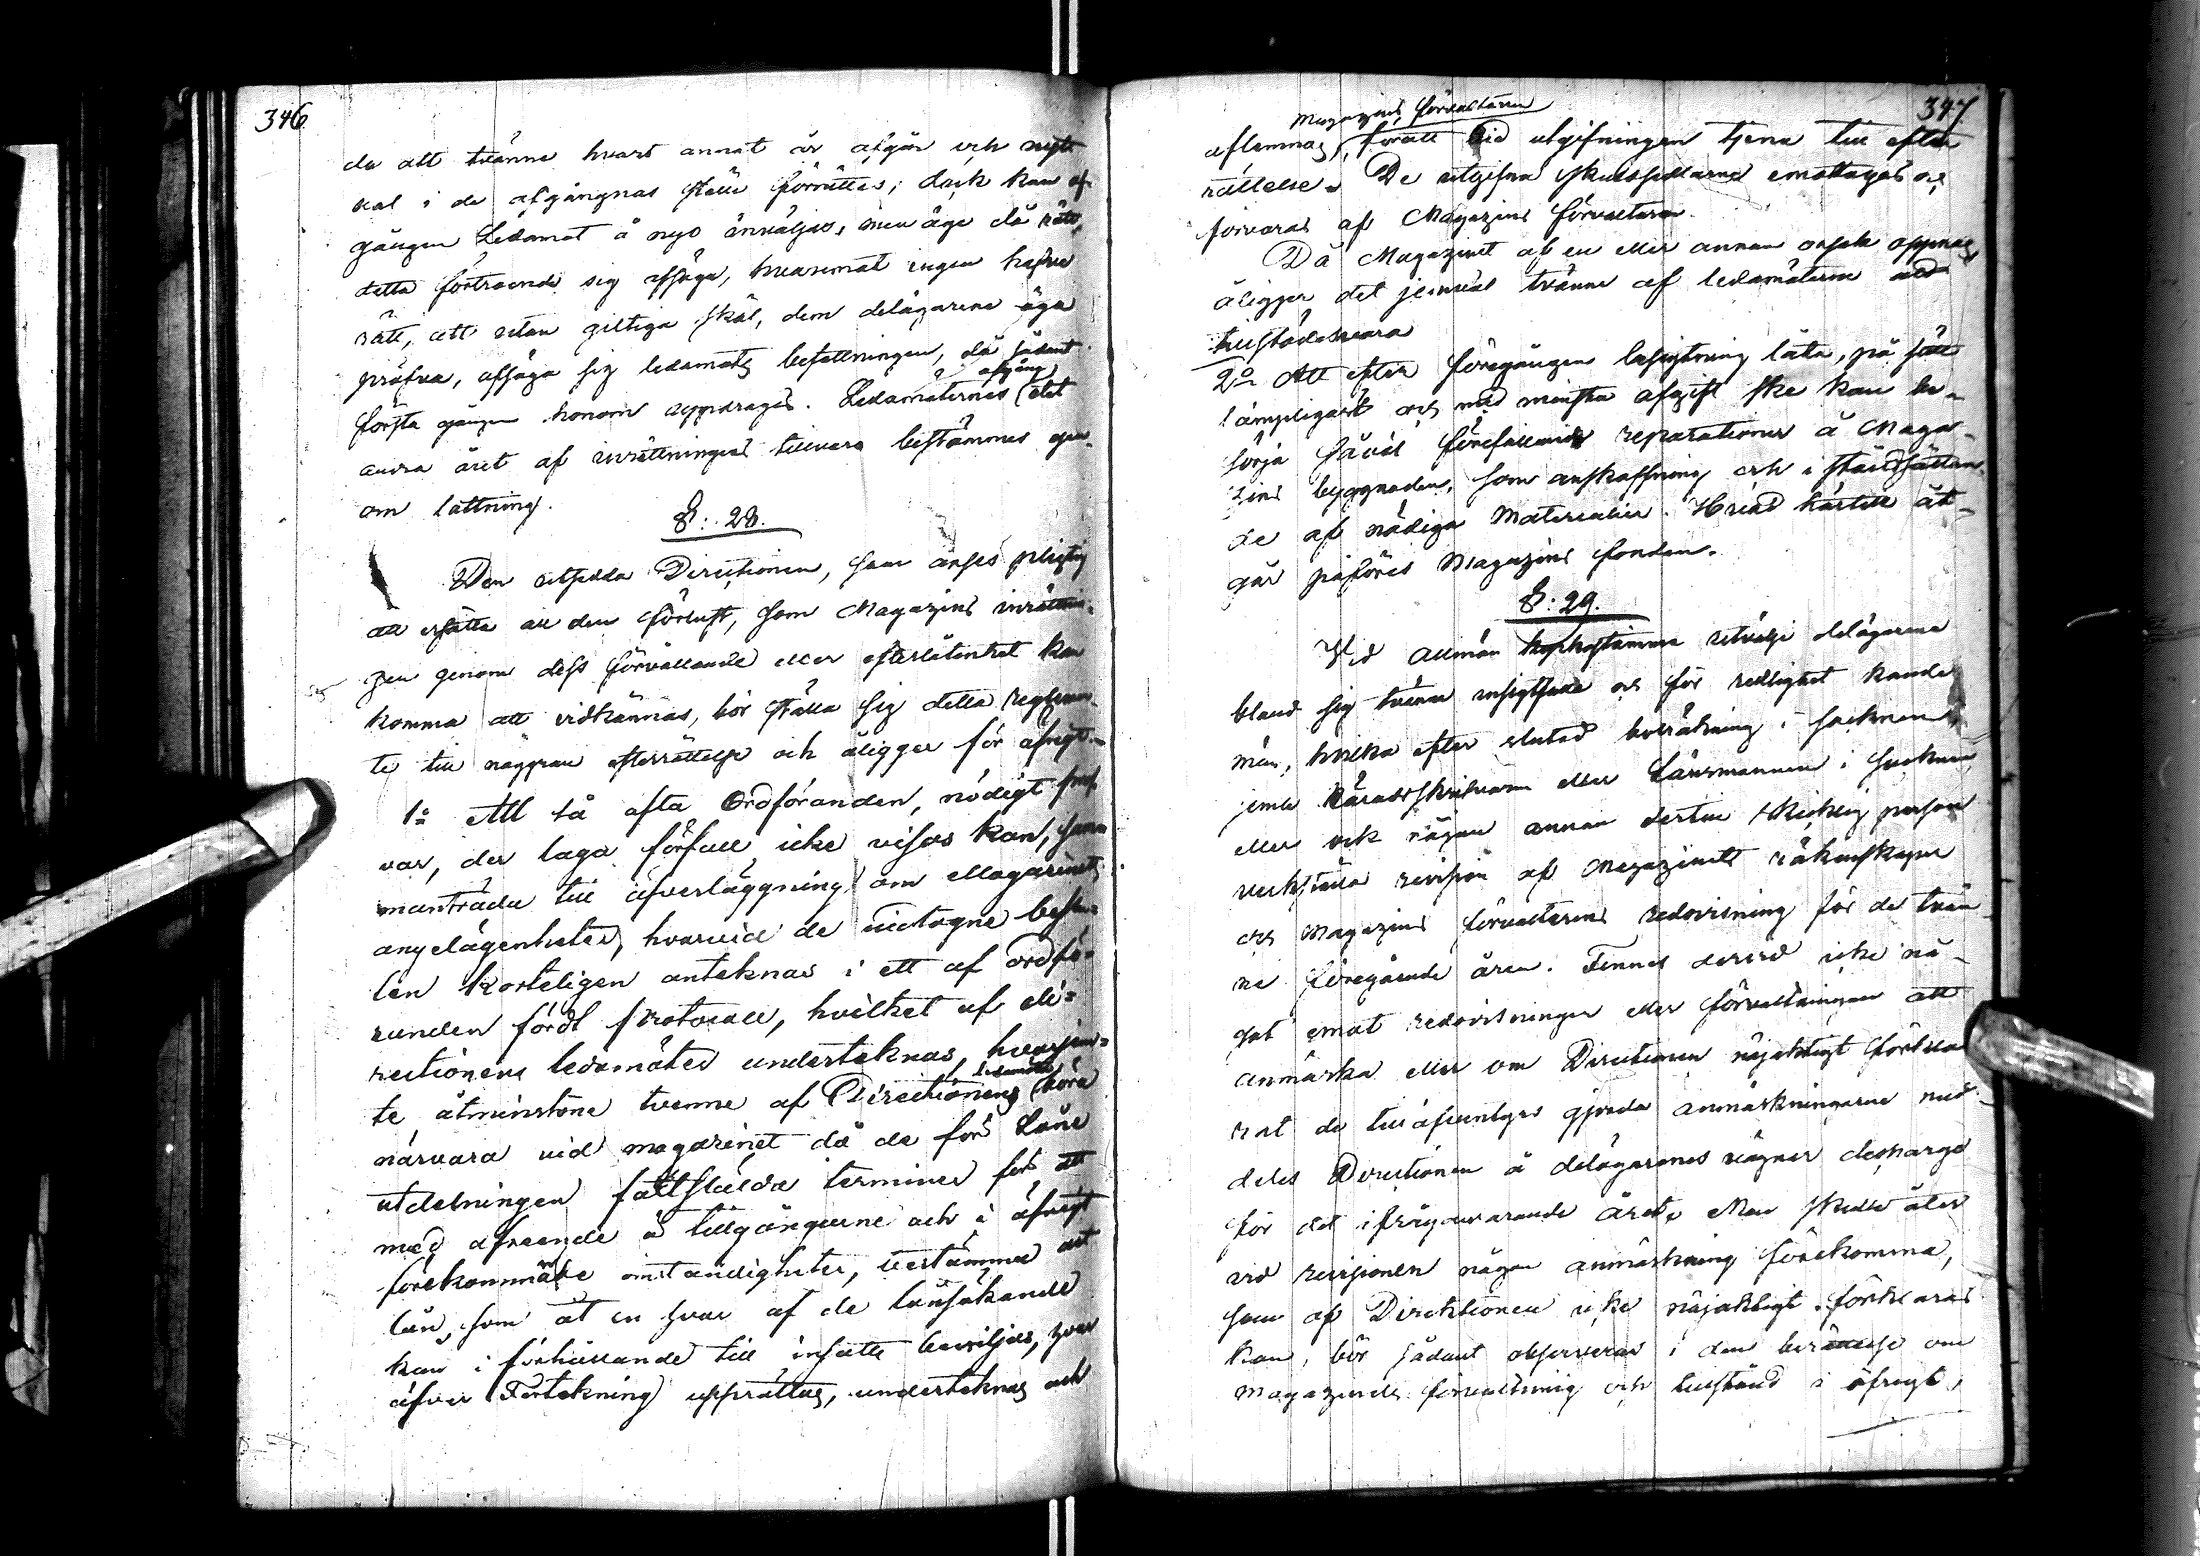 346
de att tvänne hvart annat år afgår och nytt
val i de afgångnas ställe förrättas; dock kan af-
gången Ledamot å nyo återväljas, men äge då rätt,
detta förtroende sig afsäga, hvaremot ingen hafve
rätt, att utan giltiga skäl, dem delägarene äga
pröfva, afsäga sig ledamots befattningen, då sådant
första gången honom uppdrages. Ledamöternes (afgång) det
andra året af inrättningens tillvaro bestämmes gen-
om lottning.
§: 28.
Den utsedda Directionen, som anses pligtig
att ersätta all den förlust, som Magazins inrättnin-
gen genom dess förvållande eller efterlåtenhet kan
komma att vidkännas, bör ställa sig detta reglemen-
te till noggran efterrättelse och åligger för öfrigt.
1:o Att så ofta Ordföranden, nödigt
var, der laga förfall icke visas kan, sam
manträda till öfverläggning om Magazinets
angelägenheter, hvarvid de vidtagne beslu-
ten korteligen anteknas i ett af ordfö-
randen fördt protocoll, hvilket af di-
rectionens ledamöter underteknas, hvarjem-
te åtminstone tvenne af Directionens (ledamöter) böra
närvara vid magazinet då de för Låne
utdelningen fastställda terminer för att
med afseende å tillgångarne och i öfrigt
förekommande omständigheter, bestämma det
lån, som åt en hvar af de lånsökande
kan i förhållande till insatts beviljas, hvar
öfver Förtekning upprättas, underteknas och
347
Magazins förvaltaren
aflemnas, för att vid utgifningen tjena till efter
rättelse. De utgifna skuldsedlarne emottages och
förvaras af Magazins förvaltaren.
Då Magazinet af en eller annan orsak öppnas
åligger det jemväl tvänne af ledamöterne
tillstädesvara
2:o Att efter föregången besigtning låta, på sätt
lämpligast och med minsta afgift ske kan be-
sörja såväl förefallande reparationer å Maga-
zins byggnaden, som anskaffning och i ståndsättan-
de af nödiga Materialier. Hvad härtill åt-
går påföres Magazins fonden.
§: 29.
Vid Allmän utvälje delägarena
bland sig tvenne insigtsfulle och för redlighet kände
män, hvilka efter slutad i socknen,
jemte Häradsskrifvaren eller Länsmannen i Socknen
eller ock någon annan dertill skicklig person
verkställa revision af Magazinets räkenskaper
och Magazins förvalterens redovisning för de tvän-
ne föregående åren. Finnes dervid icke nå-
got emot redovisningen eller förvaltningen att
anmärka eller om Directionen nöjaktigt förkla-
rat de till äfventyrs gjorda anmärkningarne med-
deles Directionen å delägarenes vägnar decharge
för det ifrågavarande året. Men skulle åter
vid revisionen någon anmärkning förekomma,
som af Direktionen icke nöjaktigt förklaras
kan, bör sådant observeras i den berättelse om
Magazinets förvaltning och tillstånd i öfrigt,